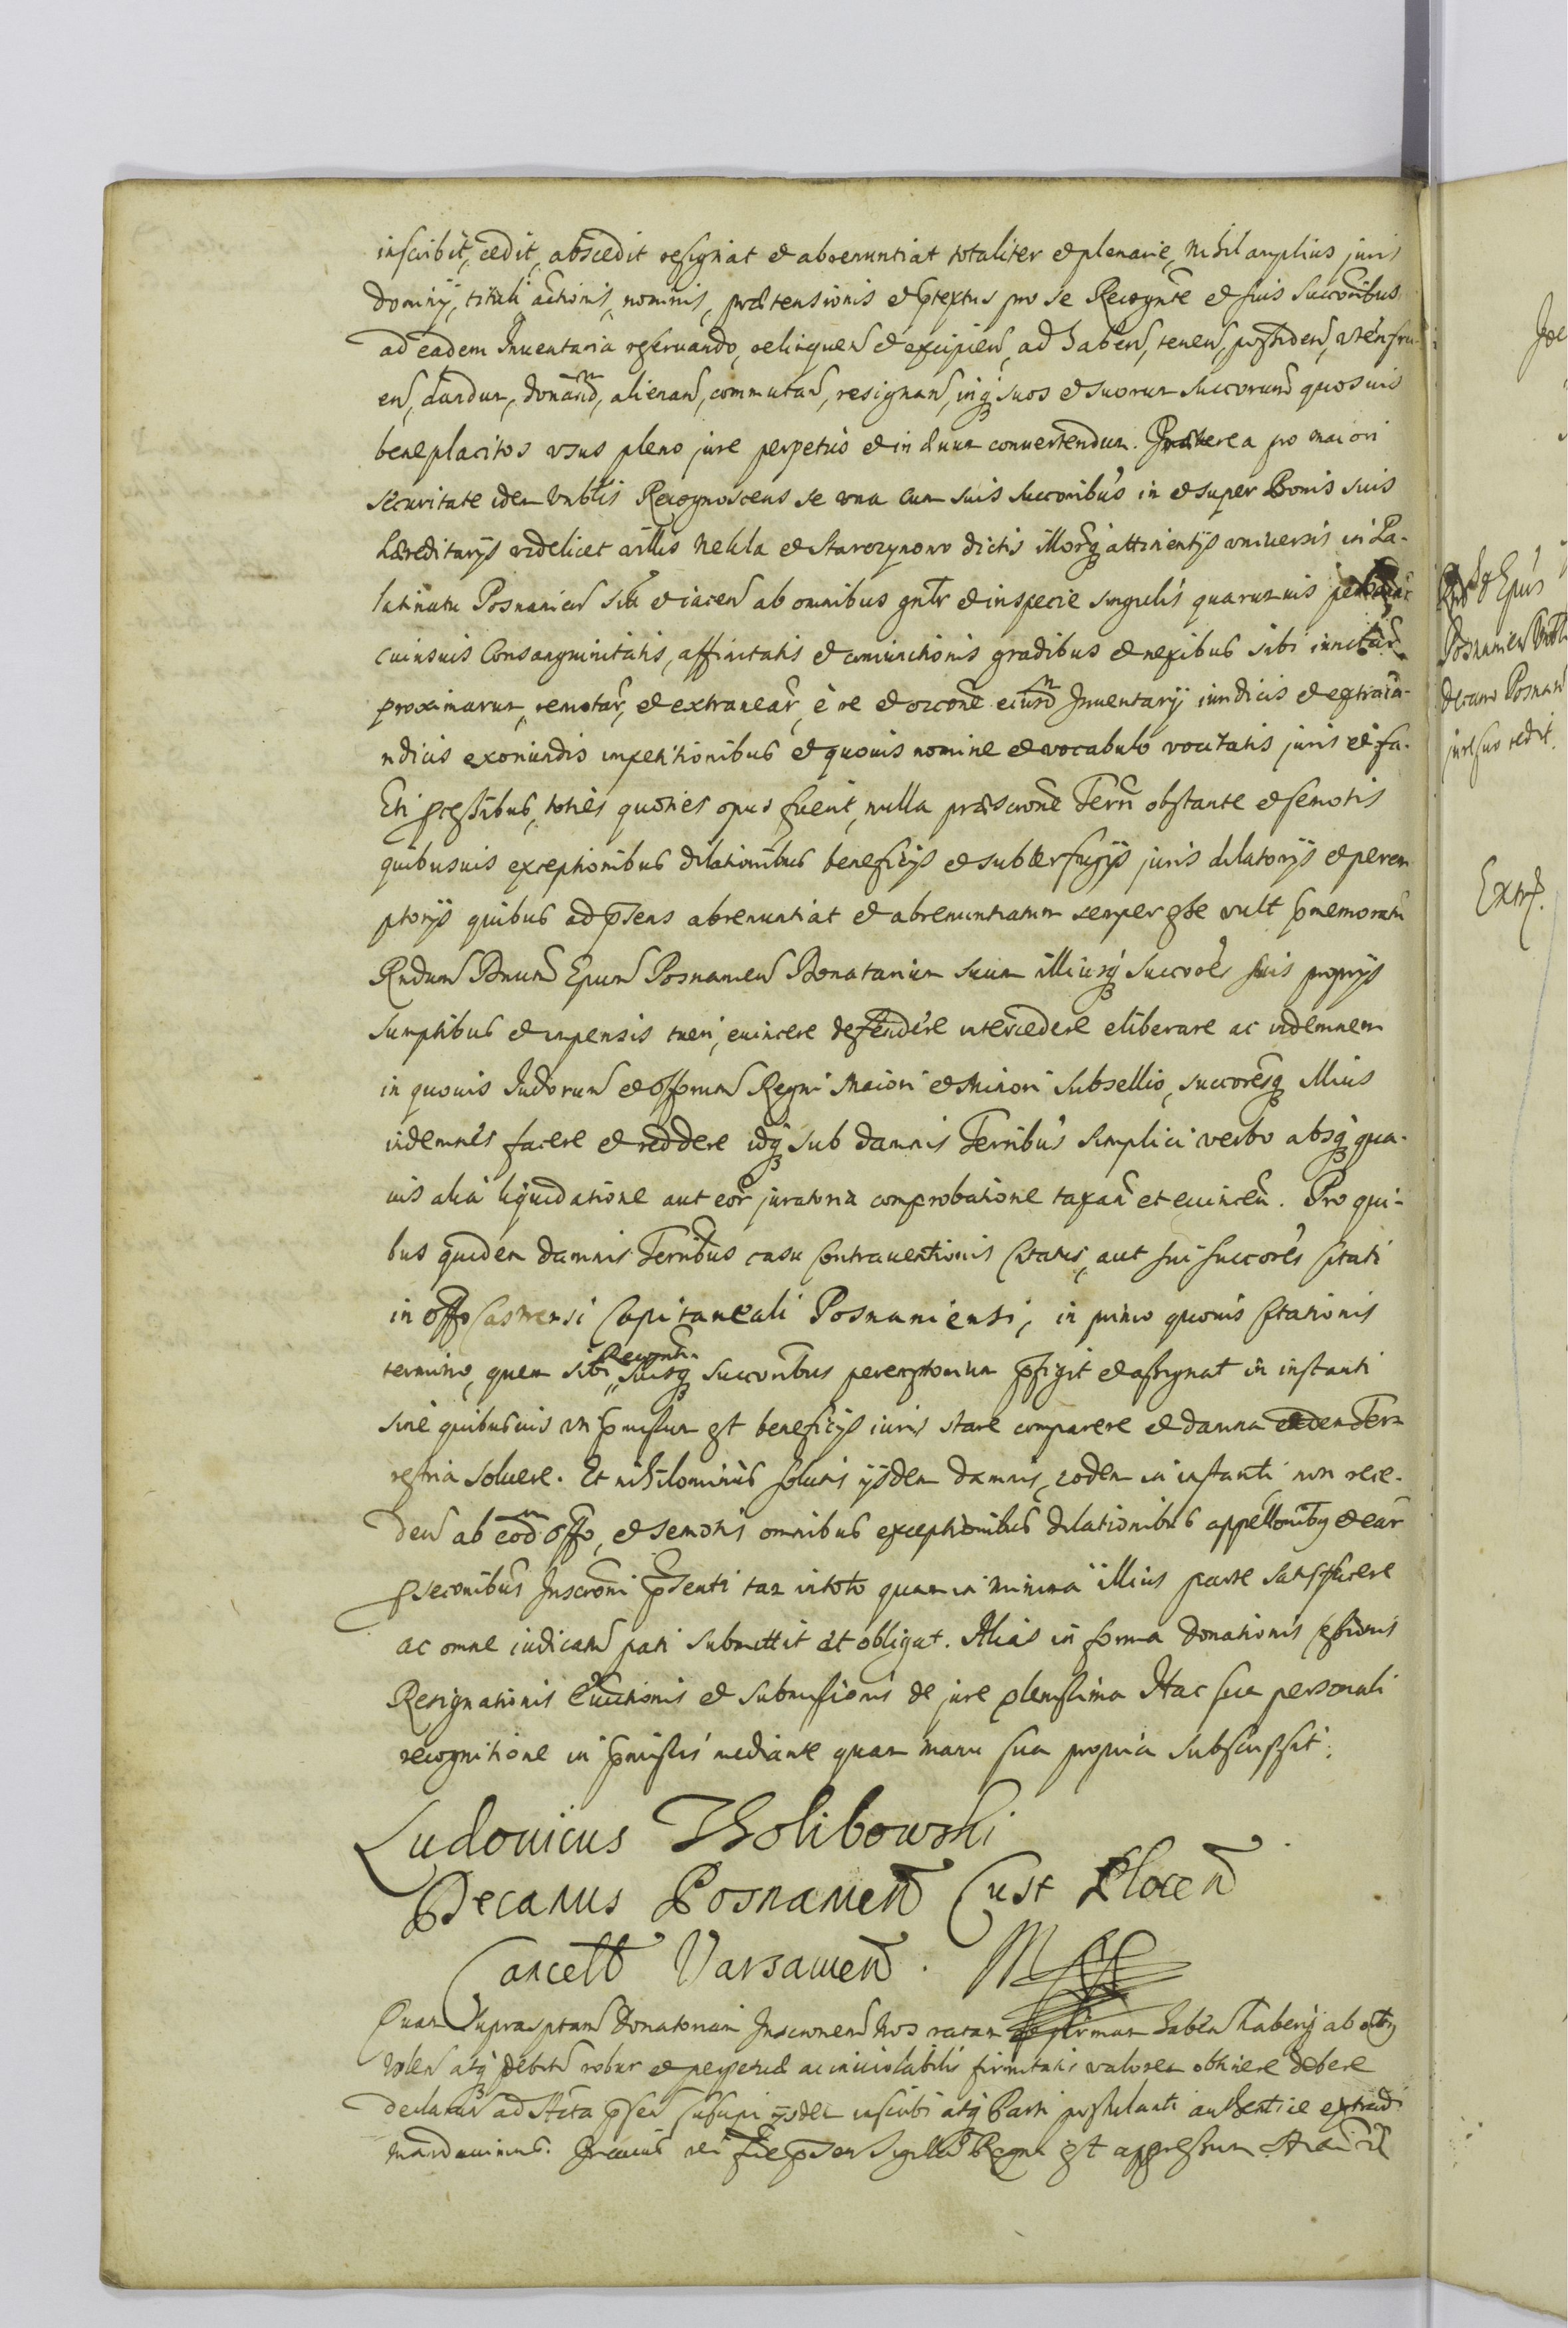 inscribit, cedit, abscedit resignat et abrenuntiat totaliter et plenarie, Nihil amplius juris
dominij, tituli actionis, nominis, prætensionis et ptextus pro se Recognte et suis Succoribus
ad eadem Inuentaria reseruando, relinquen et excipien, ad haben, tenen, possiden, vtenfru-
en, dandum, donand, alienan, commutan, resignan, inq suos et suorum Succorum quosuis
beneplacitos vsus pleno jure perpetuo et in æuum conuertendum. Præterea pro maiori
securitate idem Recognoscens se vna cum suis Succoribus in et super Bonis suis
hæreditarijs videlicet villis Nekla et Starczynowo dictis illorq attinentijs vniuersis in Pa-
latinatu Posnanien sitis et iacen ab omnibus gnlr et in specie singulis quarumuis
cuiusuis Consanguinitatis, affinitatis et coniunctionis gradibus et nexibus sibi iunctar
proximarum, remotar, et extranear, è re et occone eiusd Inuentarij iuridicis et extraiu-
ridicis exoriundis impetitionibus et quouis nomine et vocabulo vocitatis juris et fa-
cti pcessibus, toties quoties opus fuerit, nulla præscrone Terri obstante et semotis
quibusuis exceptionibus dilationibus beneficijs et subterfugijs juris dilatorijs et perem
ptorijs quibus ad psens abrenuntiat et abrenuntiatum semper esse vult pmemoratu
Rndum Dnum Epum Posnanien Donatarium suum illiusq Succores suis proprijs
sumptibus et impensis tueri, euincere defendere intercedere eliberare ac indemnem
in quouis Judiorum et Offorum Regni Maiori et Minori Subsellio, succoresq illius
indemnes facere et reddere idq sub damnis Terribus simplici verbo absq qua-
uis alia liquidatione aut eor juratoria comprobatione taxan et euincen. Pro qui-
bus quidem damnis Terribus casu Contrauentionis Citatus, aut sui succores Citati
in Offo Castrensi Capitaneali Posnaniensi, in primo quouis Citationis
termino, quem sibi Recognti suisq succoribus peremptorium pfigit et assignat in instanti
sine quibusuis vti pmissum est beneficijs iuris stare comparere et damna eadem Ter-
restria soluere. Et nihilominus solutis ijsdem damnis, eodem in instanti non rece-
den ab eod Offo, et semotis omnibus exceptionibus dilationibus appellonibq et ear
pseconibus Inscroni psenti tam in toto quam in minima illius parte satisfacere
ac omne iudicatu pati submittit et obligat. Alias in forma donationis cessionis
Resignationis Euictionis et submissionis de jure plenissima Hac sua personali
recognitione in pmissis mediante quam manu sua propria subscripsit.
Ludouicus Tholibowski
Decanus Posnanien Cust Plocen
Cancell Varsauien. Mpp
Quam Suprasptam Donatoriam Inscronem Nos ratam et firmam haben haberiq ab oibq
volen atq debitu robur et perpetuæ ac inuiolabilis firmitatis valorem obtinere debere
declaran ad Acta psen suscipi ijsdem inscribi atq Parti postulanti authentice extradi
mandauimus. In cuius rei fide psen Sigillu Regni est appressum.
Epus
Posnanien
decano Posnan
jure suo cedit.
Extr.